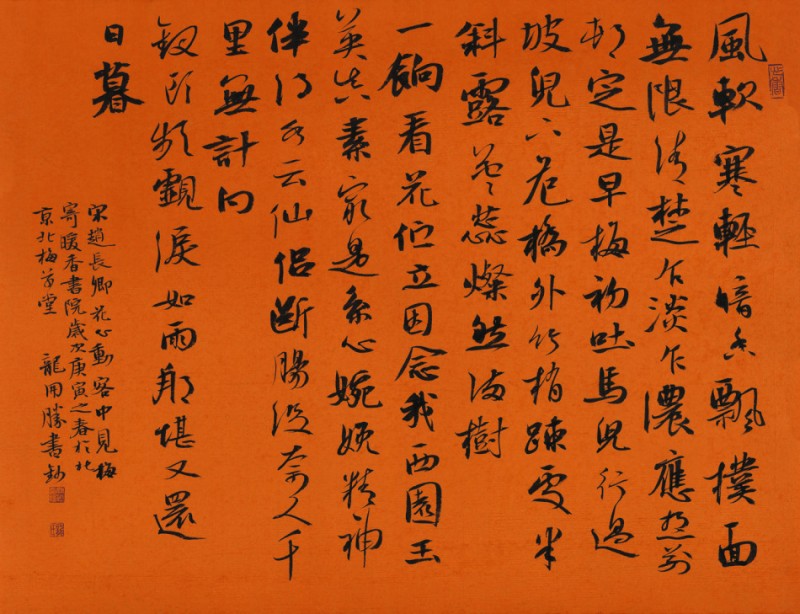 風軟寒輕暗香飄撲面
無限清楚乍淡乍濃應想前
村定是早梅初吐馬兒行過
坡兒下危橋外竹梢疎處半
斜露花々蕊燦然滿樹
一餉看花佇立因念我西園玉
英真素最是系心婉娩精神
伴得水云仙侶斷腸没奈人千
里無計向
釵頭頻覷淚如雨那堪又還
日暮
宋趙長卿花心動 客中見梅
寄暖香書院歲次庚寅之春於北
京北梅草堂 龍開勝書鈔